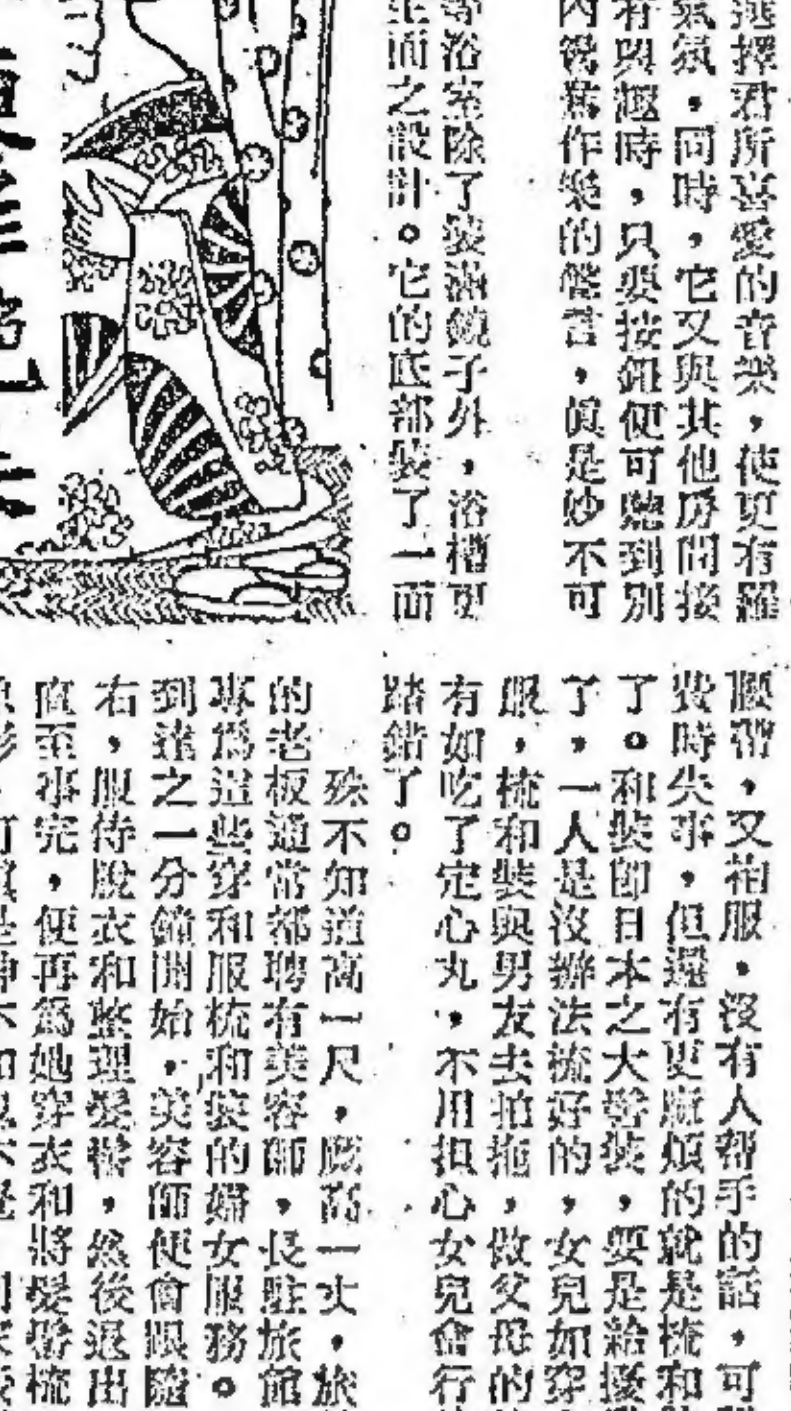 選擇君所喜愛的音樂,使更有羅
氣氛,同時,它又與其他房間接
有興趣時,只要按鈕便可聽到別
內鴛鴦作樂的聲音,眞是妙不可
浴室除了裝滿鏡子外,浴槽更
生面之設計。它的底部裝了一面
腰帶,又袖服,沒有人帮手的話,可
費時失事,但還有更麻煩的就是梳和
了。和裝即日本之大髻裝,要是給撥
了,一人是沒辦法梳好的,女兒如穿
服,梳和裝與男友去拍拖,做父母的
有如吃了定心丸,不用担心女兒會行
踏錯了。
殊不知道高一尺,魔高一丈,旅
的老板通常都聘有美容師,長駐旅館
專爲這些穿和服梳和裝的婦女服務。
到達之一分鐘開始,美容師便會跟隨
右,服侍脫衣和整理髮髻,然後退出
直至事完,便再爲她穿衣和將髮髻梳